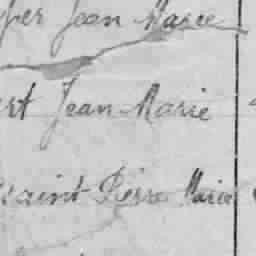 per Jean Marie
ert Jean Marie
saint Pierre Marie